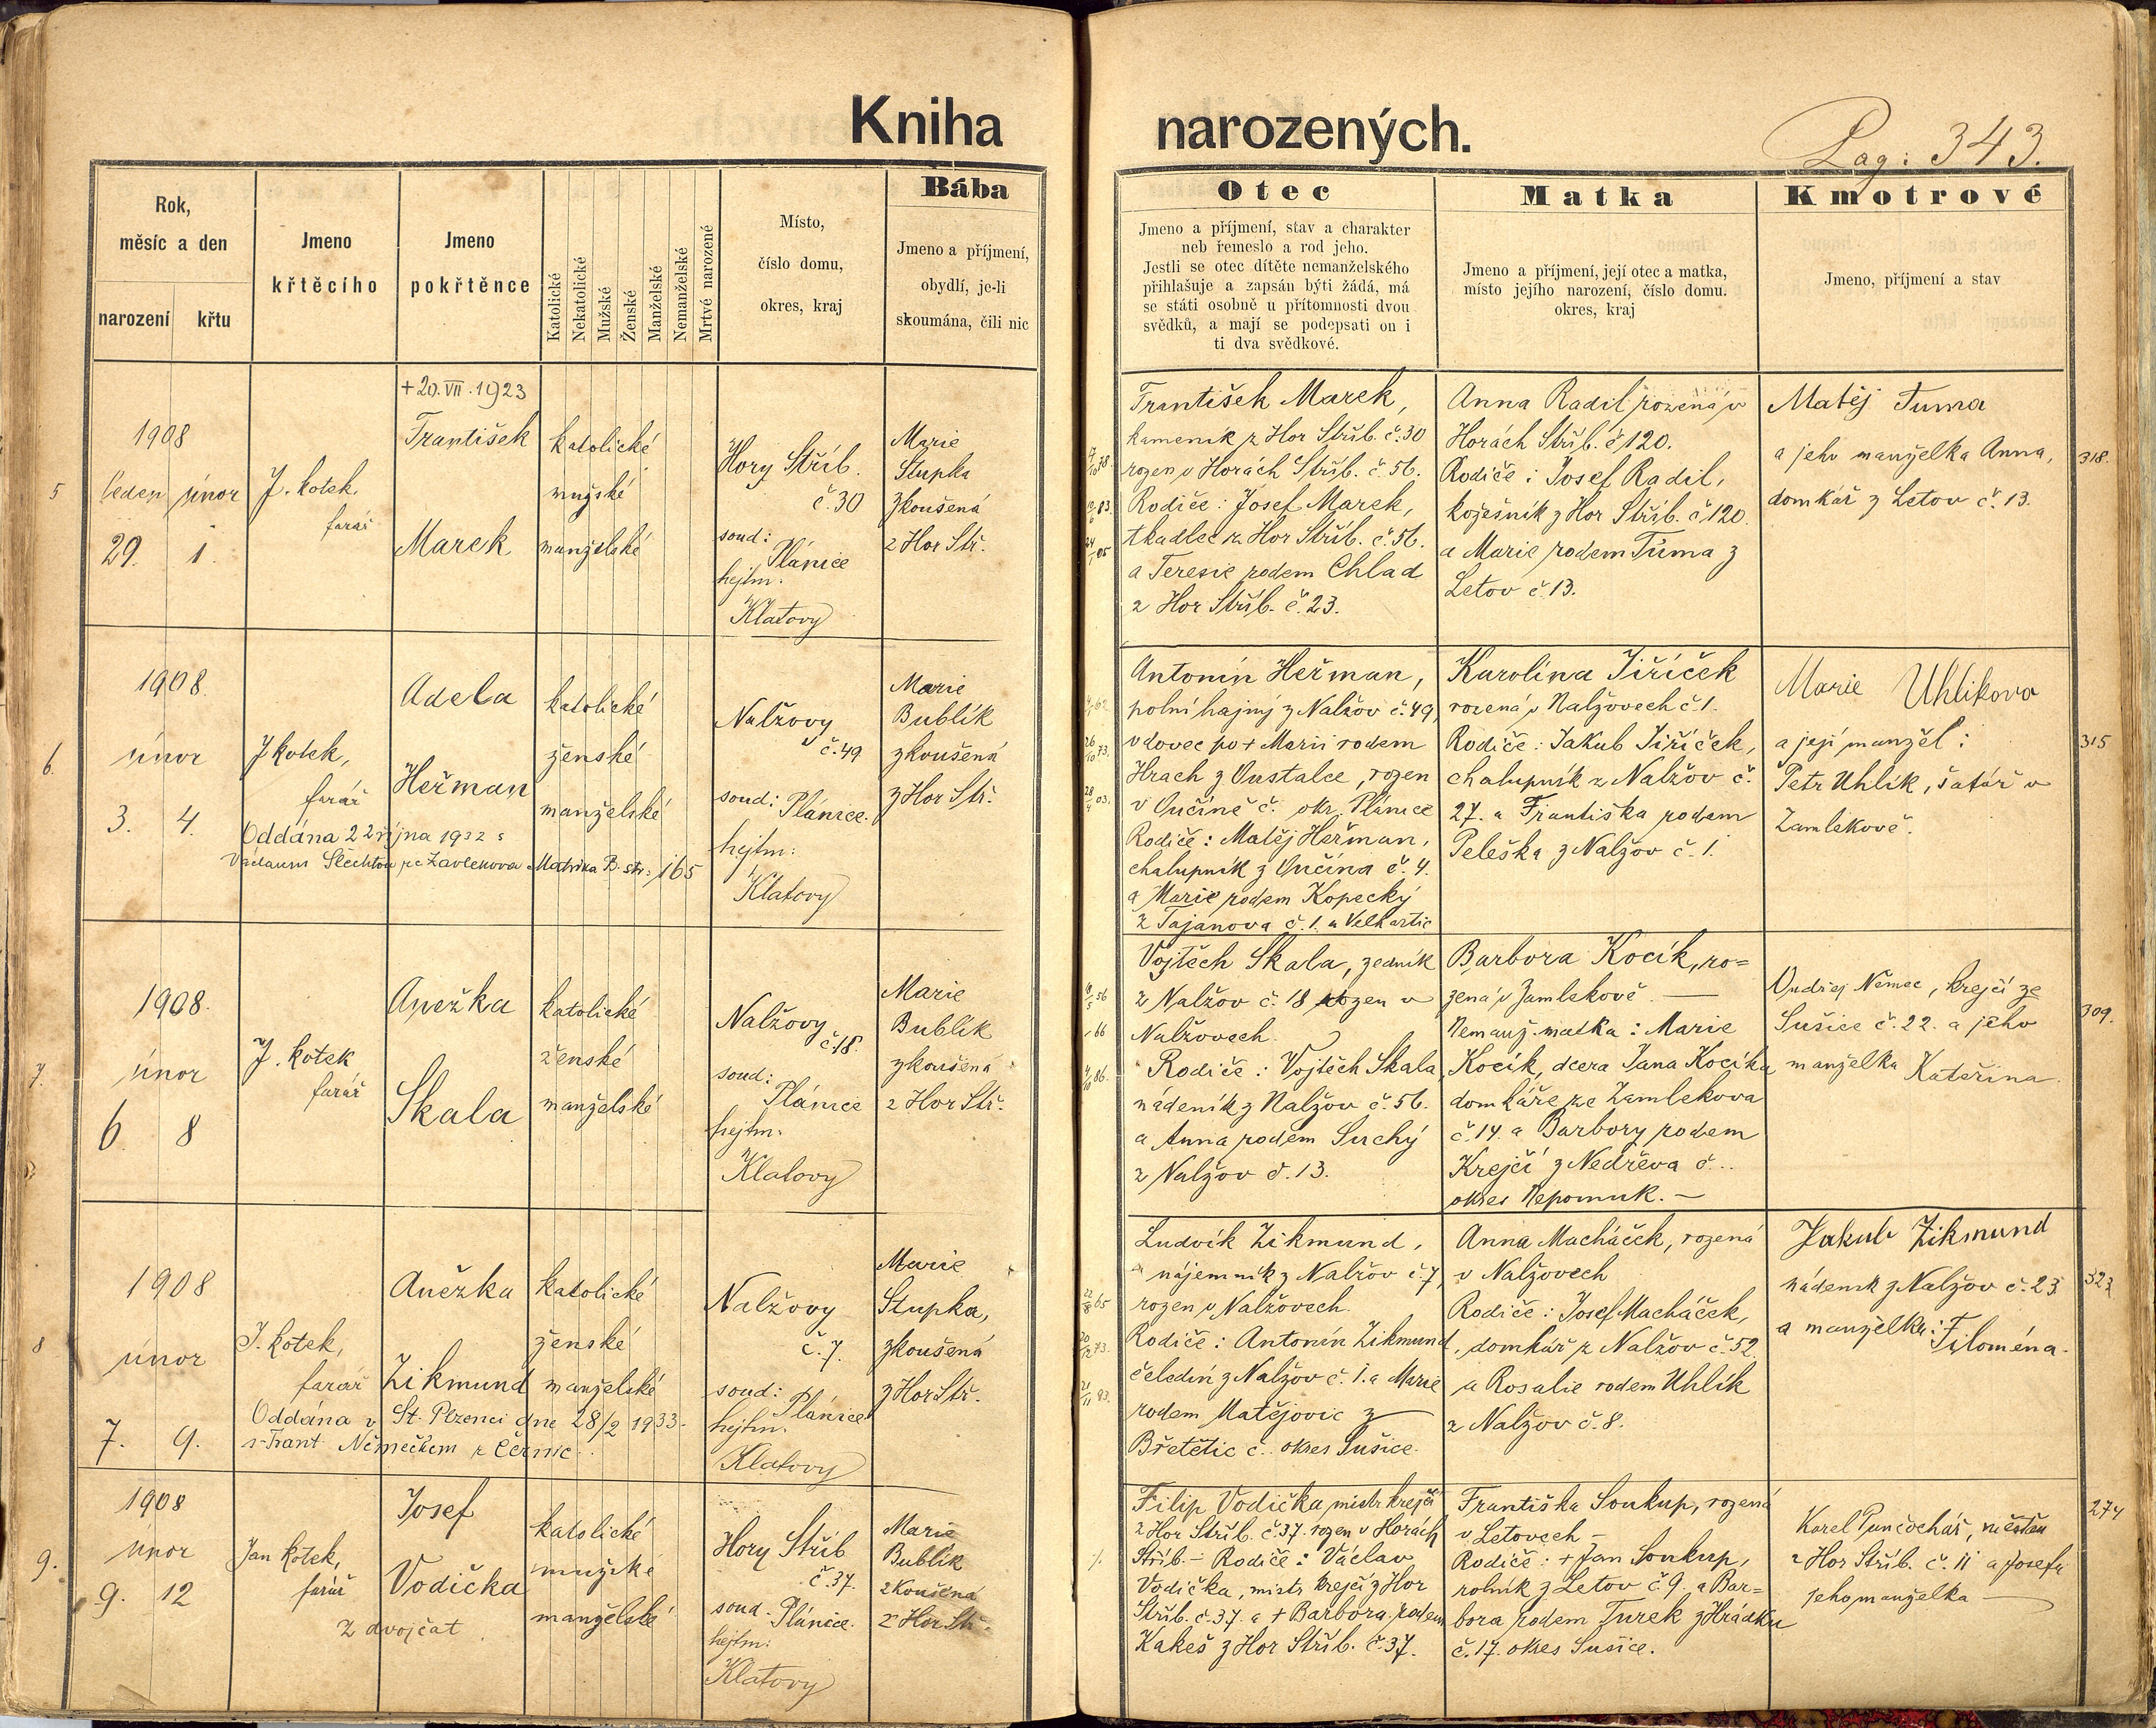 Kniha narozených.
Pag: 343.
Rok,
měsíc a den
narození křtu
Jmeno
křtěcího
Jmeno
pokřtěnce
Katolické
Nekatolické
Mužské
Ženské
Manželské
Nemanželské
Mrtvé narozené
Místo,
číslo domu,
okres, kraj
Bába
Jmeno a příjmení,
obydlí, je-li
skoumána, čili nic
Otec
Jmeno a příjmení, stav a charakter
neb řemeslo a rod jeho.
Jestli se otec dítěte nemanželského
přihlašuje a zapsán býti žádá, má
se státi osobně u přítomnosti dvou
svědků, a mají se podepsati on i
ti dva svědkové.
Matka
Jmeno a příjmení, její otec a matka,
místo jejího narození, číslo domu.
okres, kraj
Kmotrové
Jmeno, příjmení a stav
5
1908
leden únor
29. 1.
J. Kotek,
farář
+20.VII.1923
František
Marek
katolické
mužské
manželské
Hory Stříb.
č. 30
soud:
Plánice
hejtm:
Klatovy
Marie
Stupka
zkoušená
z Hor Stř.
František Marek,
kameník z Hor Stříb. č. 30
rozen v Horách Stříb. č. 56.
Rodiče: Josef Marek,
tkadlec z Hor Stříb. č. 56.
a Teresie rodem Chlad
z Hor Stříb. č. 23.
Anna Radil rozená v
Horách Stříb. č 120.
Rodiče: Josef Radil,
kožešník z Hor Stříb. č 120.
a Marie rodem Tůma z
Letov č. 13.
Matěj Tuma
a jeho manželka Anna,
domkář z Letov č. 13.
318.
6.
1908.
únor
3. 4.
J Kotek,
farář
Adela
Heřman
Oddána 22 října 1932 s
Václavem Šlechtou ze Zavlekova Matrika B. str: 165
katolické
ženské
manželské
Nalžovy
č. 49
soud: Plánice.
hejtm:
Klatovy
Marie
Bublík
zkoušená
z Hor Stř.
Antonín Heřman,
polní hajný z Nalžov č. 49,
vdovec po + Marii rodem
Hrach z Oustalce, rozen
v Oučíně č. okr. Plánice
Rodiče: Matěj Heřman,
chalupník z Oučína č. 4.
a Marie rodem Kopecký
z Tajanova č. 1. u Velhartic
Karolína Jiříček
rozená v Nalžovech č 1.
Rodiče: Jakub Jiříček,
chalupník z Nalžov č.
27. a Františka rodem
Peleška z Nalžov č. 1.
Marie Uhlíkova
a její manžel:
Petr Uhlík, šafář v
Zamlekově.
315
7.
1908.
únor
6 8
J. Kotek
farář
Anežka
Skala
katolické
ženské
manželské
Nalžovy
č. 18.
soud:
Plánice
hejtm.
Klatovy
Marie
Bublík
zkoušená
z Hor Stř.
Vojtěch Skala, zedník
z Nalžov č. 18 rozen v
Nalžovech.
Rodiče: Vojtěch Skala,
nádeník z Nalžov č. 56.
a Anna rodem Suchý
z Nalžov č. 13.
Barbora Kocík, ro=
zená v Zamlekově. —
Nemanž. matka: Marie
Kocík, dcera Jana Kocíka
domkáře ze Zamlekova
č. 14. a Barbory rodem
Krejčí z Nedřeva č...
okres Nepomuk. —
Ondřej Němec, krejčí ze
Sušice č. 22. a jeho
manželka Kateřina.
309.
8
1908
únor
7. 9.
J. Kotek,
farář
Anežka
Zikmund
Oddána v St. Plzenci dne 28/2 1933.
s Frant. Němečkem z Černic.
katolické
ženské
manželské
Nalžovy
č. 7.
soud: Plánice
hejtm.
Klatovy
Marie
Stupka,
zkoušená
z Hor Stř.
Ludvík Zikmund,
nájemník z Nalžov č. 7,
rozen v Nalžovech.
Rodiče: Antonín Zikmund,
čeledín z Nalžov č. 1. a Marie
rodem Matějovic z
Břetětic č.. okres Sušice.
Anna Macháček, rozená
v Nalžovech
Rodiče: Josef Macháček,
domkář z Nalžov č. 52.
a Rosalie rodem Uhlík
z Nalžov č. 8.
Jakub Zikmund
nádeník z Nalžov č. 23
a manželka: Filoména.
323
9.
1908
únor
9. 12
Jan Kotek,
farář
Josef
Vodička
z dvojčat
katolické
mužské
manželské
Hory Stříb
č. 37.
soud. Plánice.
hejtm:
Klatovy
Marie
Bublík
zkoušená
z Hor Stř.
Filip Vodička, mistr krejčí
z Hor Stříb. č. 37. rozen v Horách
Stříb. — Rodiče: Václav
Vodička, mistr krejčí z Hor
Stříb. č. 37. a + Barbora rodem
Kakeš z Hor Stříb. č. 37.
Františka Soukup, rozená
v Letovech —
Rodiče: + Jan Soukup,
rolník z Letov č. 9. a Bar=
bora rodem Turek z Hrádku
č. 17. okres Sušice.
Karel Punčochář, měšťan
z Hor Stříb. č. 11 a Josefa
jeho manželka —
274